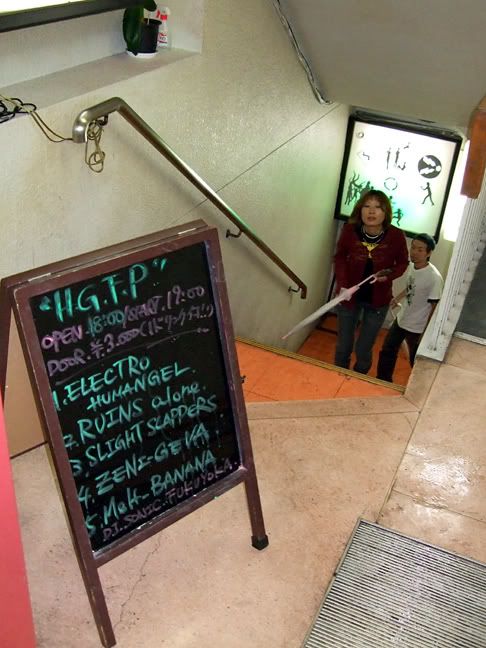 "H.G.F.P"
OPEN 18:00/START 19:00
DOOR. ¥3.000(1ドリンク付)
1. ELECTRO
HUMANGEL
2. RUINS alone.
3 SLIGHT SLAPPERS
4. ZENI-GEVA
5. Melt-BANANA
D.J. SONIC. FUKUYOKA